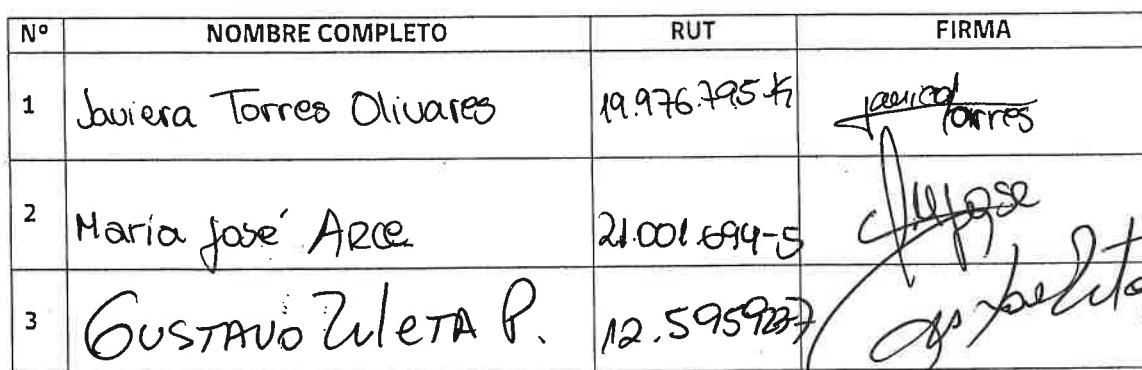 Nº NOMBRE COMPLETO RUT FIRMA
1 Javiera Torres Olivares 19.976.795-K Javiera Torres
2 María José Arce 21.001.694-5
3 GUSTAVO ZULETA P.